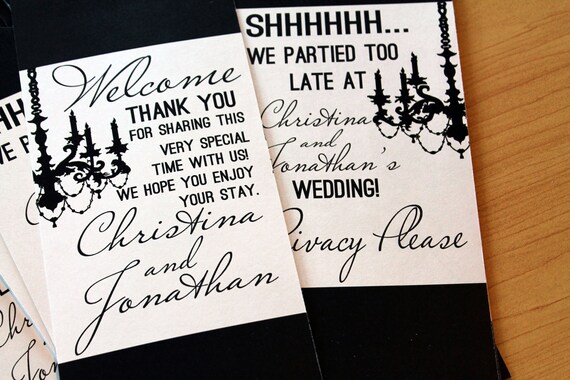 Welcome
THANK YOU
FOR SHARING THIS
VERY SPECIAL
TIME WITH US!
WE HOPE YOU ENJOY
YOUR STAY.
Christina
and
Jonathan
SHHHHHH...
WE PARTIED TOO
LATE AT
Christina
and
Jonathan's
WEDDING!
Privacy Please